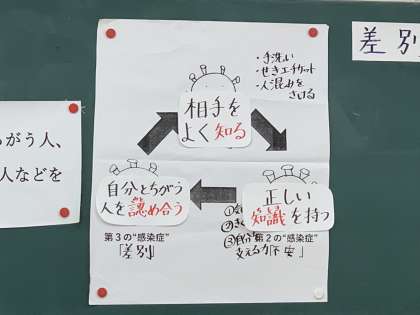 差別
・手洗い
・せきエチケット
・人混みを
さける
相手を
よく知る
がう人、
人などを
自分とちがう
人を認め合う
正しい
知識を持つ
第3の“感染症”
「差別」
第2の“感染症”
「不安」